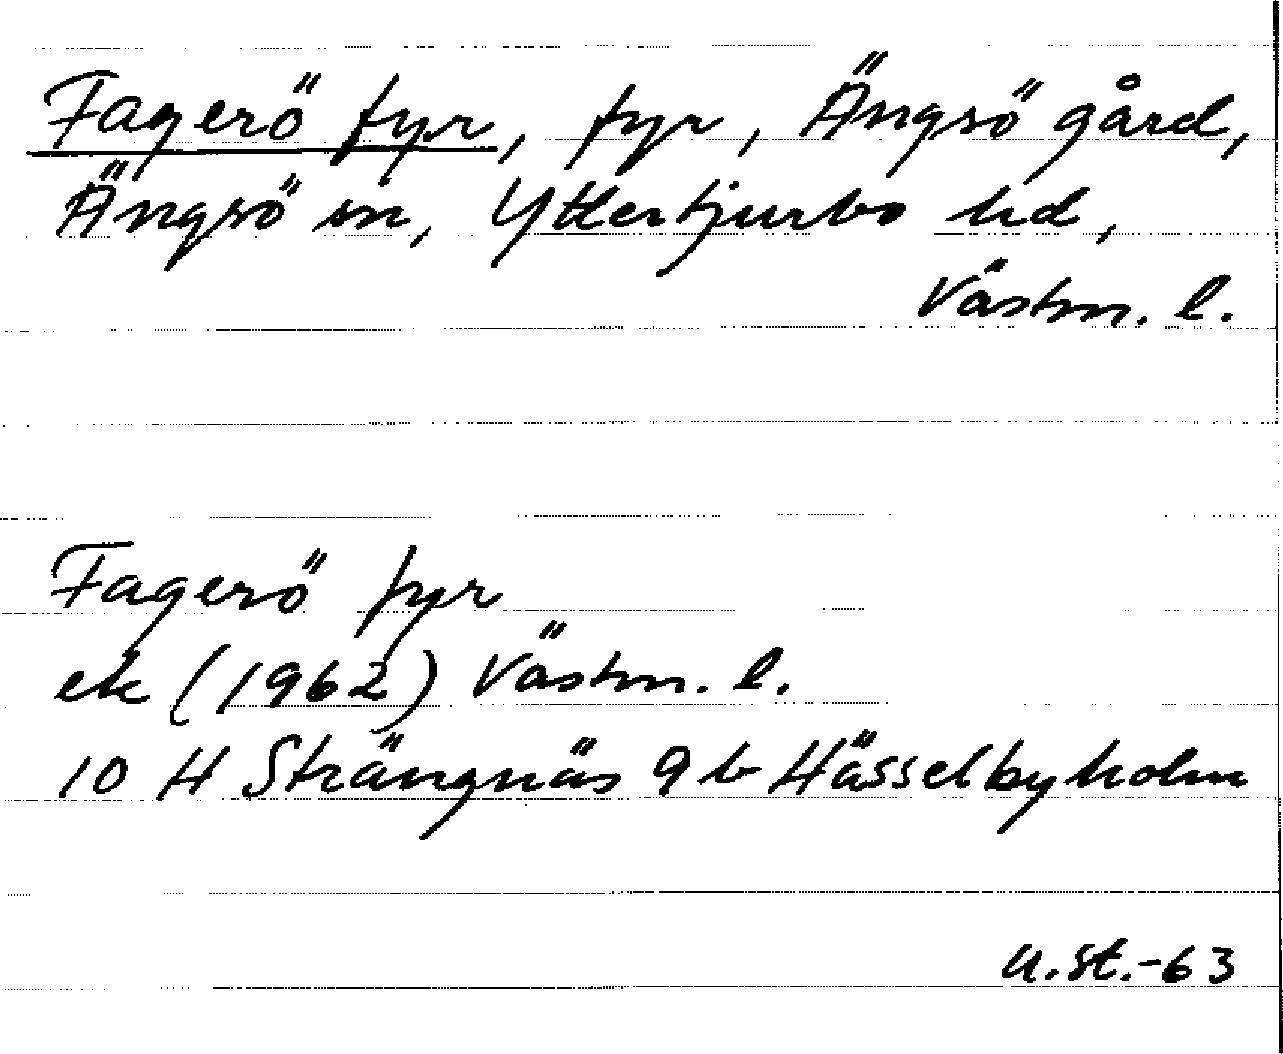 Fagerö fyr, fyr, Ängsö gård,
Ängsö sn, Yttertjurbo hd,
Västm. l.
Fagerö fyr
ek (1962) Västm. l.
10 H Strängnäs 9 b Hässelbyholm
u.st.-63